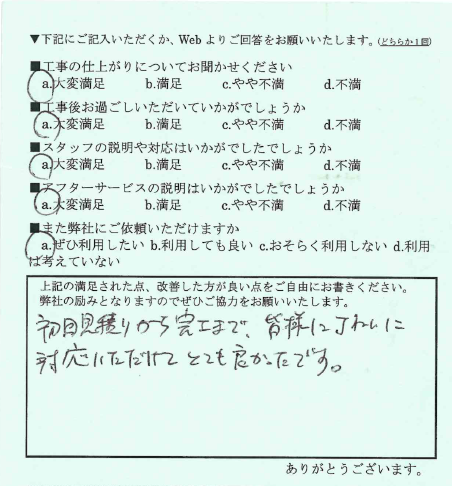 ▼下記にご記入いただくか、Webよりご回答をお願いいたします。(どちらか1回)
■工事の仕上がりについてお聞かせください
a.大変満足 b.満足 c.やや不満 d.不満
■工事後お過ごしいただいていかがでしょうか
a.大変満足 b.満足 c.やや不満 d.不満
■スタッフの説明や対応はいかがでしたでしょうか
a.大変満足 b.満足 c.やや不満 d.不満
■アフターサービスの説明はいかがでしたでしょうか
a.大変満足 b.満足 c.やや不満 d.不満
■また弊社にご依頼いただけますか
a.ぜひ利用したい b.利用しても良い c.おそらく利用しない d.利用
は考えていない
上記の満足された点、改善した方が良い点をご自由にお書きください。
弊社の励みとなりますのでぜひご協力をお願いいたします。
初回見積りから完工まで、皆様に丁ねいに
対応いただけてとても良かったです。
ありがとうございます。